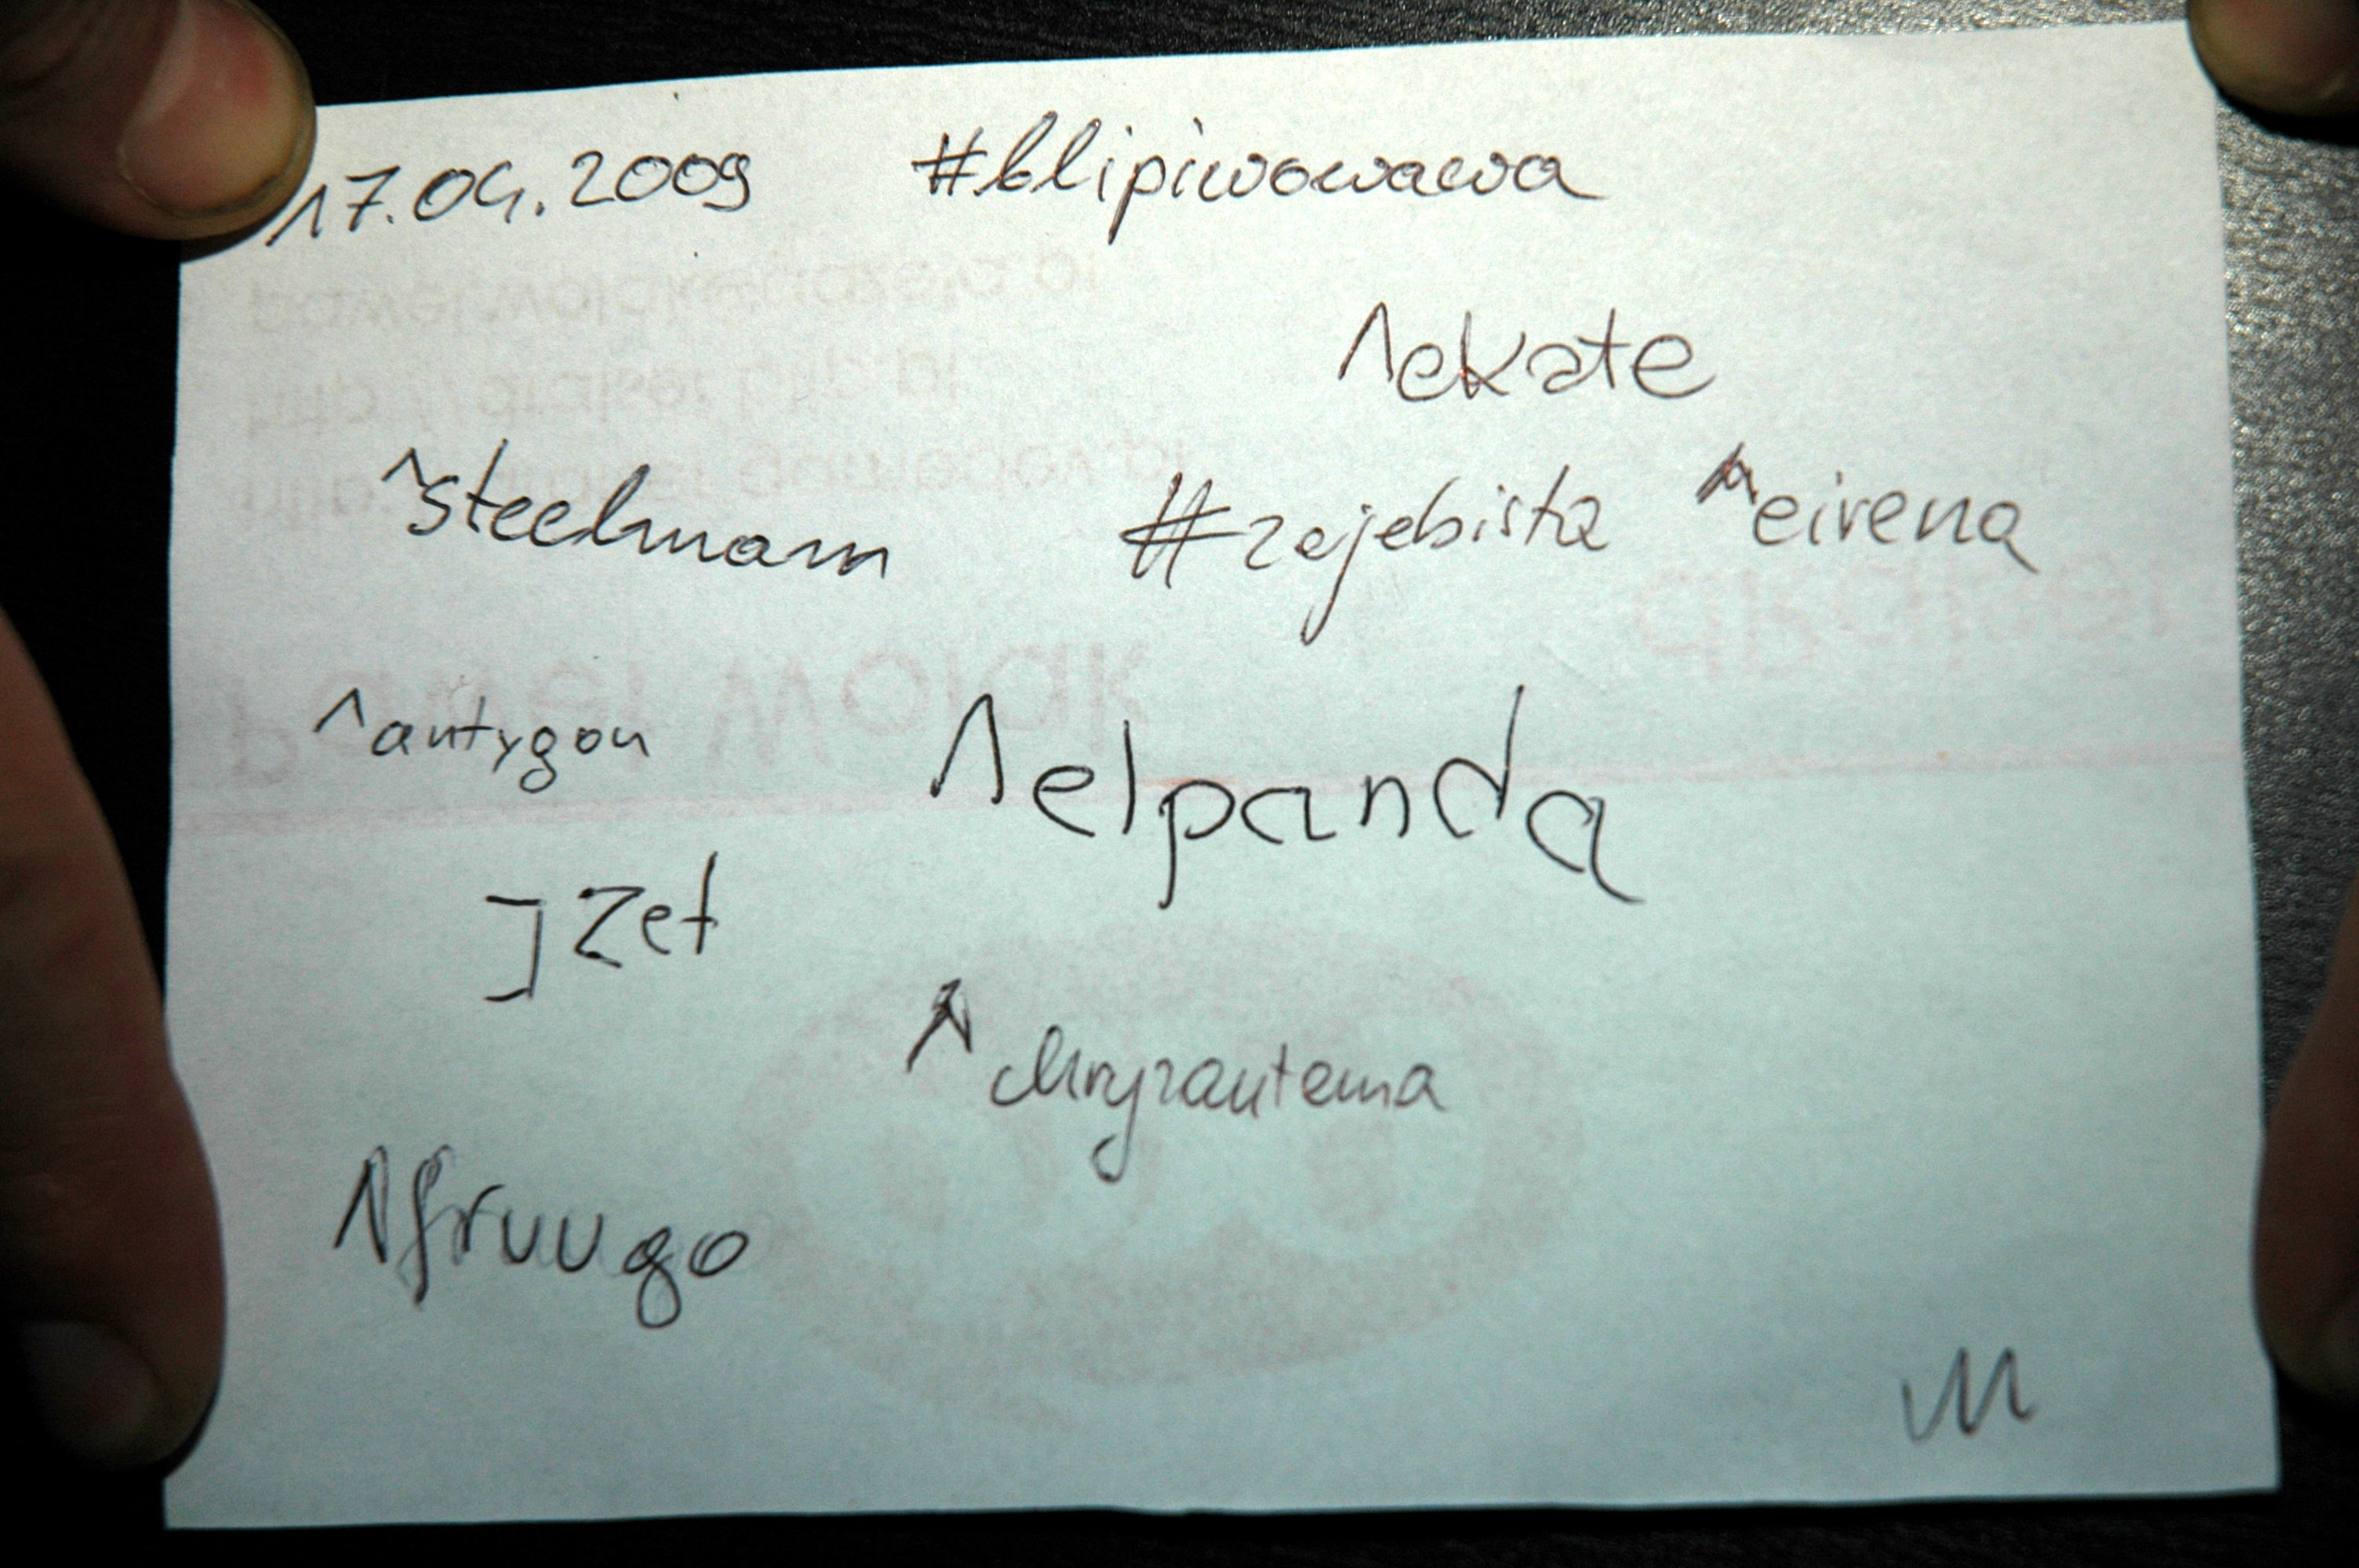 17.04.2009 #blipiwowawa
^ekate
^steelmann
#zajebista ^eirena
^antygon
^elpanda
jzet
^chryzantema
^fruugo
M